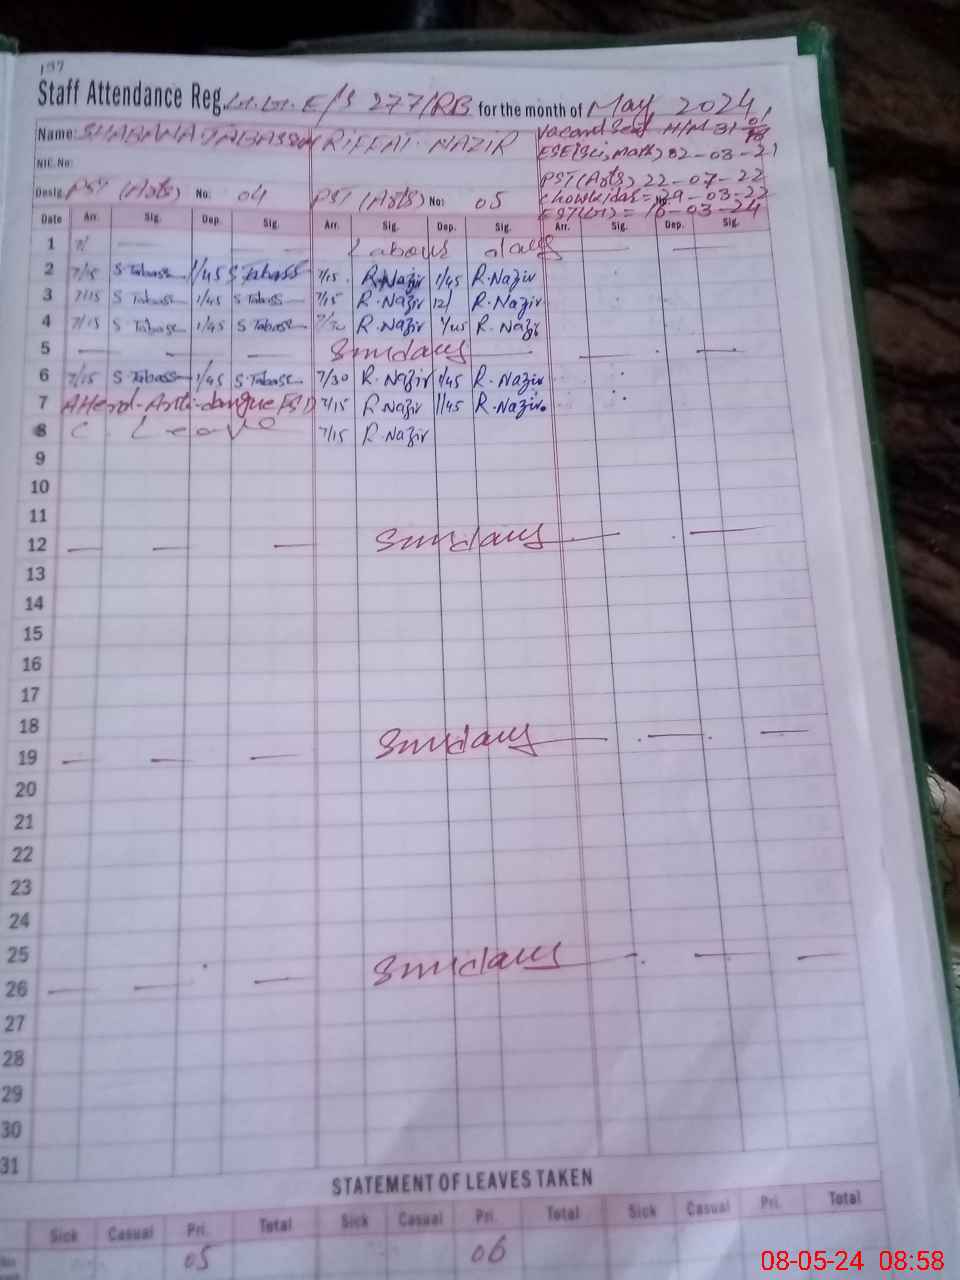 197
Staff Attendance Reg. E/S 277/RB for the month of May 2024
Name: SHABANA TABASSUM RIFFAT NAZIR Vacand Seat H/M 31-01
ESE(Sci, Math) 02-03-21
NIC. No:
PST (Arts) 22-07-22
Desig. PST (Arts) No: 04 PST (Arts) No: 05 Chowkidar = 29-03-22
= 16-03-24
Date Arr. Sig. Dep. Sig. Arr. Sig. Dep. Sig. Arr. Sig. Dep. Sig.
1 7/ Labour day
2 7/15 S Tabass 1/45 S Tabass 7/15 R.Nazir 1/45 R.Nazir
3 7/15 S Tabass 1/45 S Tabass 7/15 R.Nazir 12/ R.Nazir
4 7/15 S Tabass 1/45 S Tabass 7/30 R.Nazir 1/45 R.Nazir
5 Sunday
6 7/15 S Tabass 1/45 S.Tabass 7/30 R.Nazir 1/45 R.Nazir
7 Attend-Anti-dengue FSD 7/15 R.Nazir 1/45 R.Nazir
8 C. Leave 7/15 R.Nazir
9
10
11
12 Sunday
13
14
15
16
17
18
19 Sunday
20
21
22
23
24
25
26 Sunday
27
28
29
30
31
STATEMENT OF LEAVES TAKEN
Sick Casual Pri. Total Sick Casual Pri. Total Sick Casual Pri. Total
05 06
08-05-24 08:58